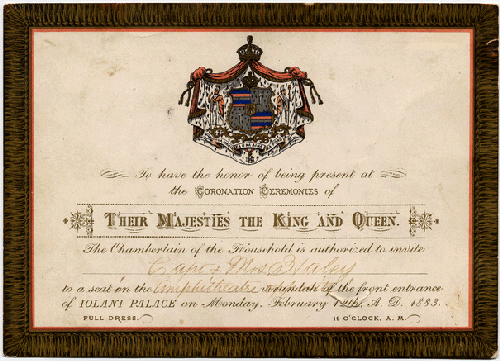 To have the honor of being present at
the CORONATION CEREMONIES of
THEIR MAJESTIES THE KING AND QUEEN.
The Chamberlain of the Household is authorized to invite
Capt & Mrs Haley
to a seat on the Amphitheatre of the front entrance
of IOLANI PALACE on Monday, February 12th, A. D. 1883.
FULL DRESS.
11 O'CLOCK, A. M.